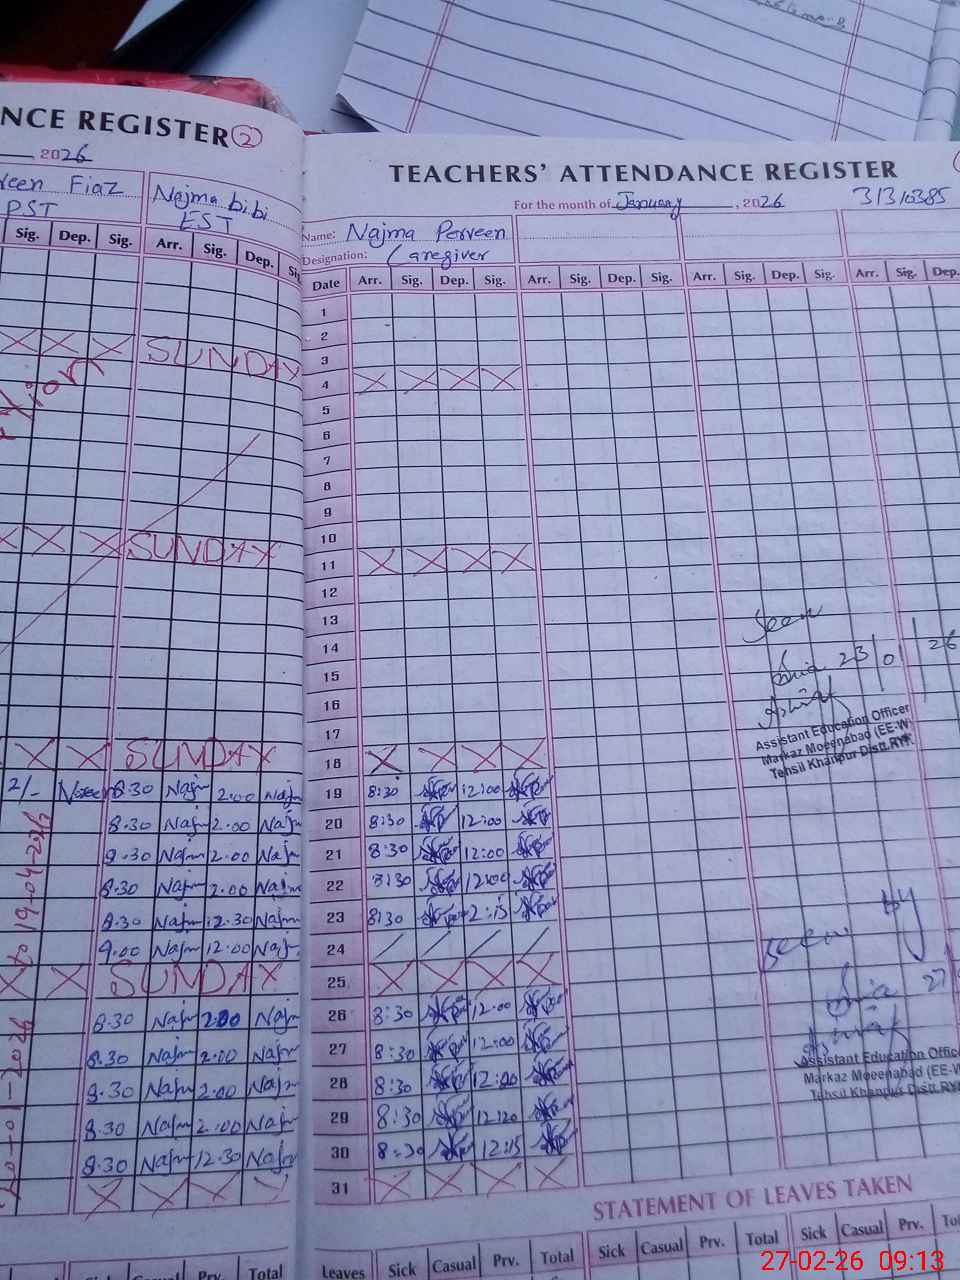 NCE REGISTER 2
, 2026
reen Fiaz Najma bibi
PST EST
Sig. Dep. Sig. Arr. Sig. Dep. Sig
X X X SUNDAY
X X SUNDAY
X X X SUNDAY
8.30 Najm 2.00 Najm
8.30 Najm 2.00 Najm
8.30 Najm 2.00 Najm
8.30 Najm 2.00 Najm
8.30 Najm 12.30 Najm
9.00 Najm 12.00 Najm
X X SUNDAY
8.30 Najm 2.00 Najm
8.30 Najm 2.00 Najm
8.30 Najm 2.00 Najm
8.30 Najm 2.00 Najm
8.30 Najm 12.30 Najm
X X X
Prv. Total
TEACHERS' ATTENDANCE REGISTER
For the month of January, 2026 31310385
Name: Najma Perveen
Designation: Caregiver
Date Arr. Sig. Dep. Sig. Arr. Sig. Dep. Sig. Arr. Sig. Dep. Sig. Arr. Sig. Dep.
1
2
3
4 X X X X
5
6
7
8
9
10
11 X X X X
12
13
14
15
16
17
18 X X X X
19 8:30 12:00
20 8:30 12:00
21 8:30 12:00
22 8:30 12:00
23 8:30 12:15
24
25 X X X X
26 8:30 12:00
27 8:30 12:00
28 8:30 12:00
29 8:30 12:20
30 8:30 12:15
31 X X X X
Seen
23/01/26
Assistant Education Officer
Markaz Moeenabad (EE-W)
Tehsil Khanpur Distt.RYK
Seen
27
Assistant Education Offic
Markaz Moeenabad (EE-W
Tehsil Khanpur Distt.RY
STATEMENT OF LEAVES TAKEN
Leaves Sick Casual Prv. Total Sick Casual Prv. Total Sick Casual Prv. To
27-02-26 09:13